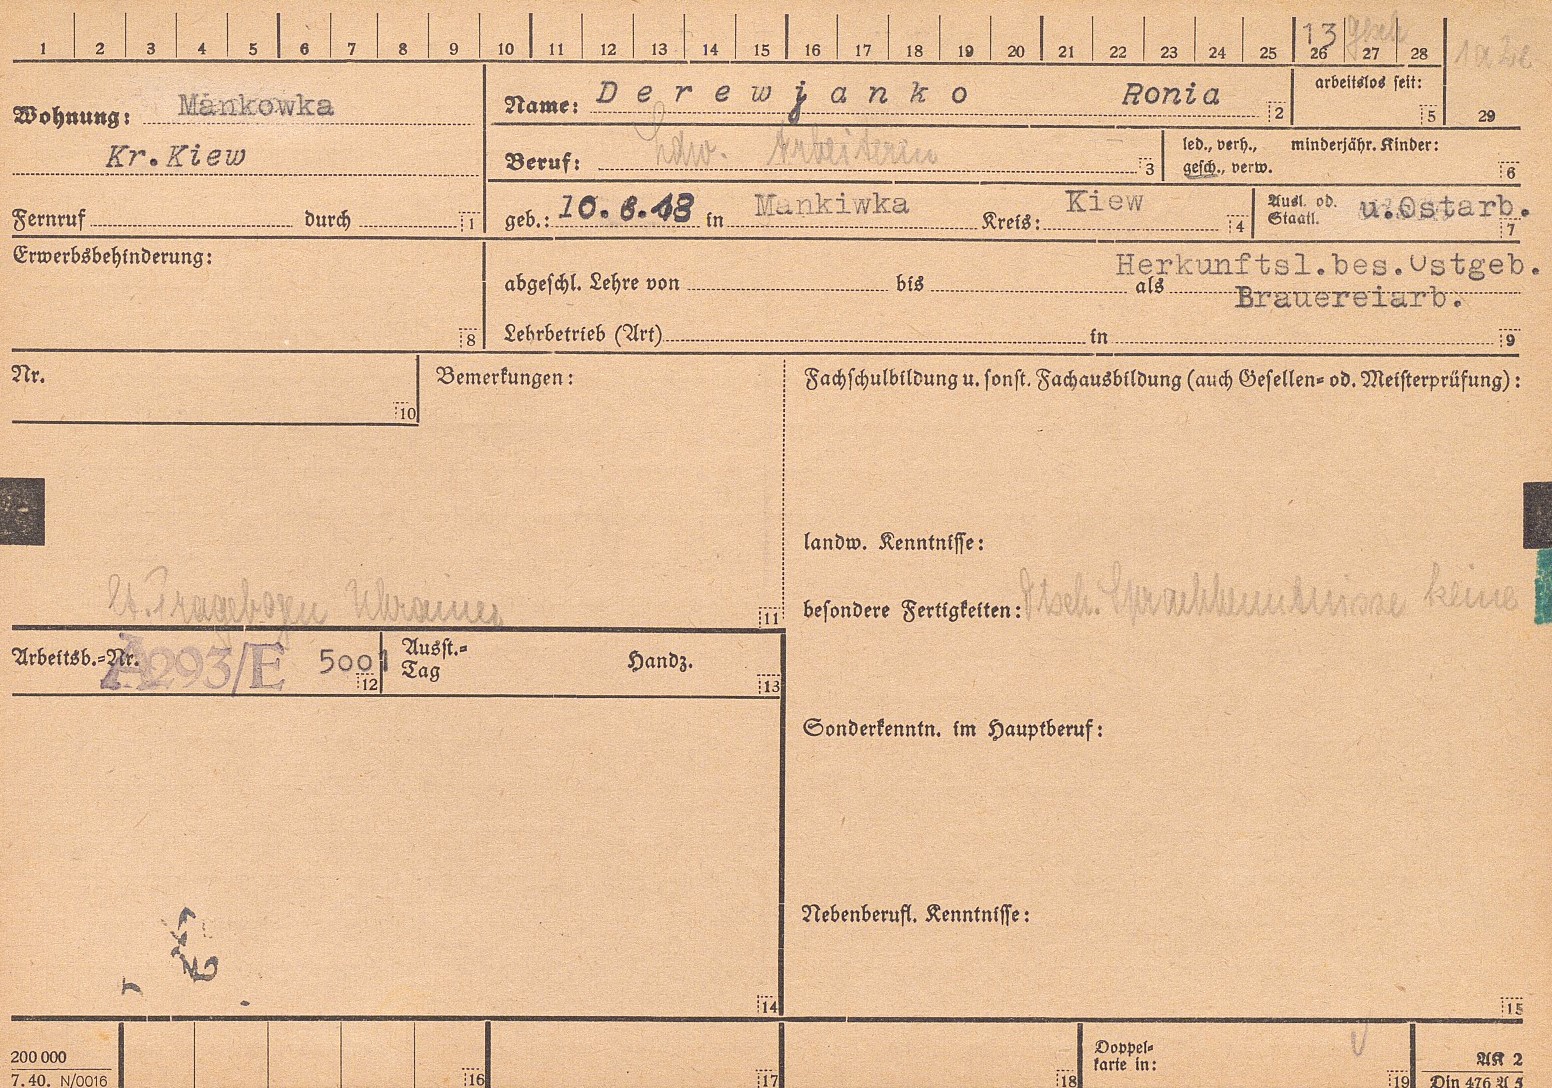 1 2 3 4 5 6 7 8 9 10 11 12 13 14 15 16 17 18 19 20 21 22 23 24 25 26 27 28
13 gesch
Wohnung: Mankowka
Kr.Kiew
Fernruf durch 1
Name: Derewjanko Ronia 2
arbeitslos seit: 5
29
Beruf: Ldw. Arbeiterin 3
led., verh., minderjähr. Kinder:
gesch., verw. 6
geb.: in Mankiwka Kreis: Kiew 4
Ausl. od. Staatl. u.Ostarb. 7
Erwerbsbehinderung: 8
Herkunftsl.bes.Ostgeb.
abgeschl. Lehre von bis als
Brauereiarb.
Lehrbetrieb (Art) in 9
Nr. 10
Bemerkungen:
lt. Fragebogen Ukraine 11
Fachschulbildung u. sonst. Fachausbildung (auch Gesellen- od. Meisterprüfung):
landw. Kenntnisse:
besondere Fertigkeiten: Dtsch. Sprachkenntnisse keine
Arbeitsb.-Nr. A293/E 5001 12
Ausst.-Tag Handz. 13
Sonderkenntn. im Hauptberuf:
Nebenberufl. Kenntnisse:
14 15
200 000
7. 40. N/0016
16 17 18
Doppelkarte in: 19
AK 2
Din 476 A 5